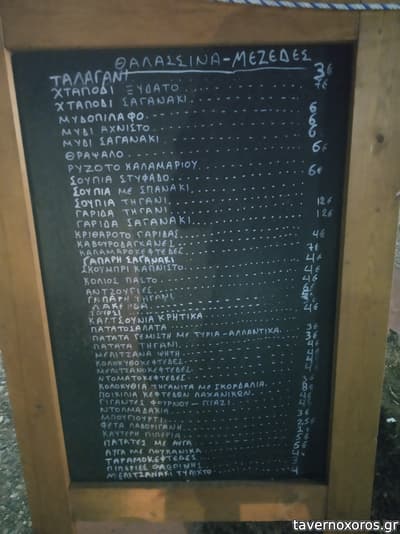 ΘΑΛΑΣΣΙΝΑ-ΜΕΖΕΔΕΣ
ΤΑΛΑΓΑΝΙ 3€
ΧΤΑΠΟΔΙ ΞΥΔΑΤΟ 7€
ΧΤΑΠΟΔΙ ΣΑΓΑΝΑΚΙ
ΜΥΔΟΠΙΛΑΦΟ 6
ΜΥΔΙ ΑΧΝΙΣΤΟ 6
ΜΥΔΙ ΣΑΓΑΝΑΚΙ 6
ΘΡΑΨΑΛΟ 6€
ΡΥΖΟΤΟ ΚΑΛΑΜΑΡΙΟΥ
ΣΟΥΠΙΑ ΣΤΥΦΑΔΟ 6€
ΣΟΥΠΙΑ ΜΕ ΣΠΑΝΑΚΙ
ΣΟΥΠΙΑ ΤΗΓΑΝΙ
ΓΑΡΙΔΑ ΤΗΓΑΝΙ 12€
ΓΑΡΙΔΑ ΣΑΓΑΝΑΚΙ 12€
ΚΡΙΘΑΡΟΤΟ ΓΑΡΙΔΑΣ
ΚΑΒΟΥΡΟΔΑΓΚΑΝΕΣ 4€
ΚΑΛΑΜΑΡΟΚΕΦΤΕΔΕΣ
ΓΑΠΑΡΗ ΣΑΓΑΝΑΚΙ 7€
ΣΚΟΥΜΠΡΙ ΚΑΠΝΙΣΤΟ 4€
ΚΟΛΙΟΣ ΠΑΣΤΟ 4€
ΑΝΤΖΟΥΓΙΕΣ
ΓΑΠΑΡΗ ΤΗΓΑΝΙ
ΛΑΚΕΡΔΑ
ΚΑΛΤΣΟΥΝΙΑ ΚΡΗΤΙΚΑ
ΠΑΤΑΤΟΣΑΛΑΤΑ 3€
ΠΑΤΑΤΑ ΓΕΜΙΣΤΗ ΜΕ ΤΥΡΙΑ-ΑΛΛΑΝΤΙΚΑ
ΠΑΤΑΤΑ ΤΗΓΑΝΙ
ΜΕΛΙΤΖΑΝΑ ΨΗΤΗ
ΚΟΛΟΚΥΘΟΚΕΦΤΕΔΕΣ
ΜΕΛΙΤΖΑΝΟΚΕΦΤΕΔΕΣ
ΝΤΟΜΑΤΟΚΕΦΤΕΔΕΣ
ΚΟΛΟΚΥΘΙ ΤΗΓΑΝΙΤΑ ΜΕ ΣΚΟΡΔΑΛΙΑ
ΠΟΙΚΙΛΙΑ ΚΕΦΤΕΔΩΝ ΛΑΧΑΝΙΚΩΝ
ΓΙΓΑΝΤΕΣ ΦΟΥΡΝΟΥ - ΠΙΑΖΙ
ΝΤΟΛΜΑΔΑΚΙΑ
ΜΠΟΥΓΙΟΥΡΤΙ
ΦΕΤΑ ΛΑΔΟΡΙΓΑΝΗ
ΚΑΥΤΕΡΗ ΠΙΠΕΡΙΑ
ΠΑΤΑΤΕΣ ΜΕ ΑΥΓΑ
ΑΥΓΑ ΜΕ ΛΟΥΚΑΝΙΚΑ
ΤΑΡΑΜΟΚΕΦΤΕΔΕΣ
ΠΙΠΕΡΙΕΣ ΦΛΩΡΙΝΗΣ
ΜΕΛΙΤΖΑΝΑΚΙ ΤΥΛΙΧΤΟ
tavernoxoros.gr